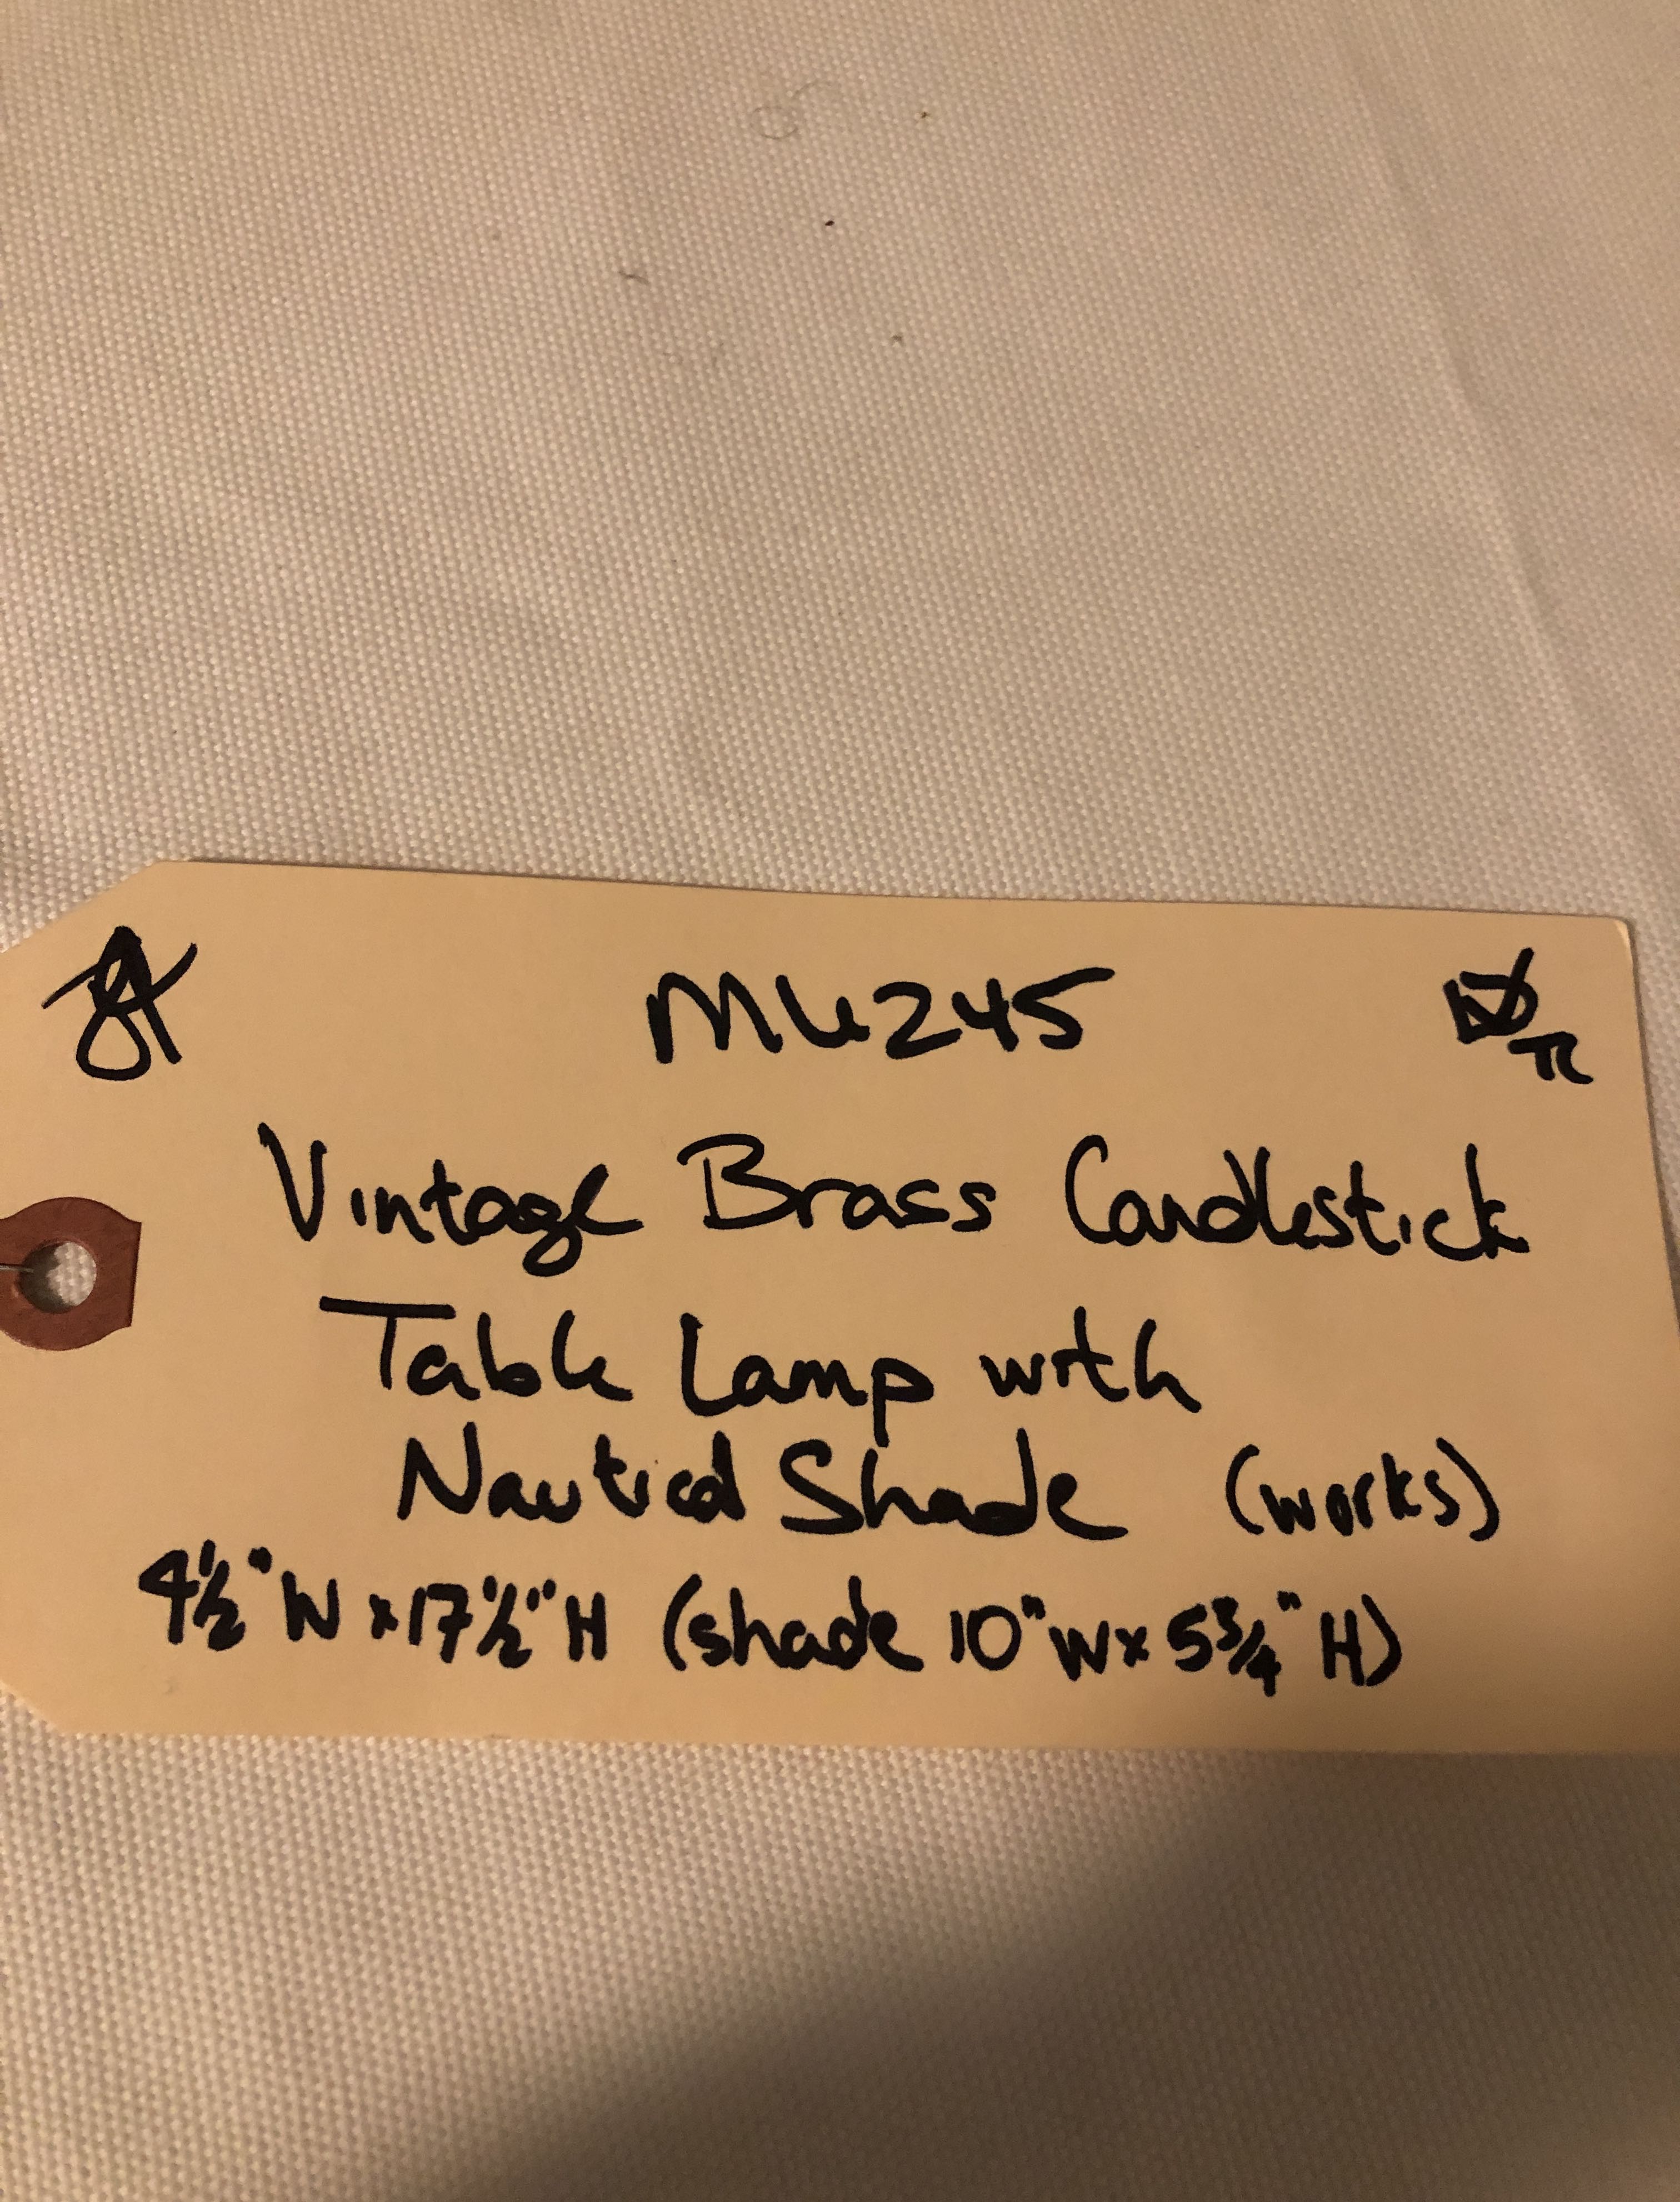 Mu245
Vintage Brass Candlestick
Table Lamp with
Nautical Shade (works)
4½"W x 17½"H (shade 10"W x 5¾"H)